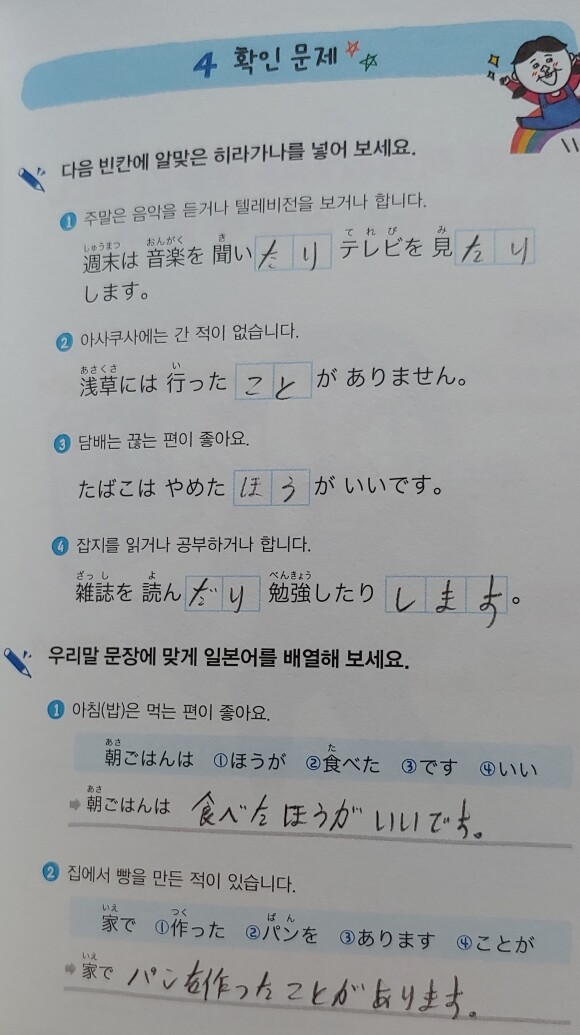 4 확인 문제
다음 빈칸에 알맞은 히라가나를 넣어 보세요.
1 주말은 음악을 듣거나 텔레비전을 보거나 합니다.
しゅうまつ おんがく き てれび み
週末は 音楽を 聞い たり テレビを 見 たり
します。
2 아사쿠사에는 간 적이 없습니다.
あさくさ い
浅草には 行った こと が ありません。
3 담배는 끊는 편이 좋아요.
たばこは やめた ほう が いいです。
4 잡지를 읽거나 공부하거나 합니다.
ざっし よ べんきょう
雑誌を 読ん だり 勉強したり します 。
우리말 문장에 맞게 일본어를 배열해 보세요.
1 아침(밥)은 먹는 편이 좋아요.
あさ た
朝ごはんは ①ほうが ②食べた ③です ④いい
あさ
➡ 朝ごはんは 食べたほうがいいです。
2 집에서 빵을 만든 적이 있습니다.
いえ つく ぱん
家で ①作った ②パンを ③あります ④ことが
いえ
➡ 家で パンを作ったことがあります。